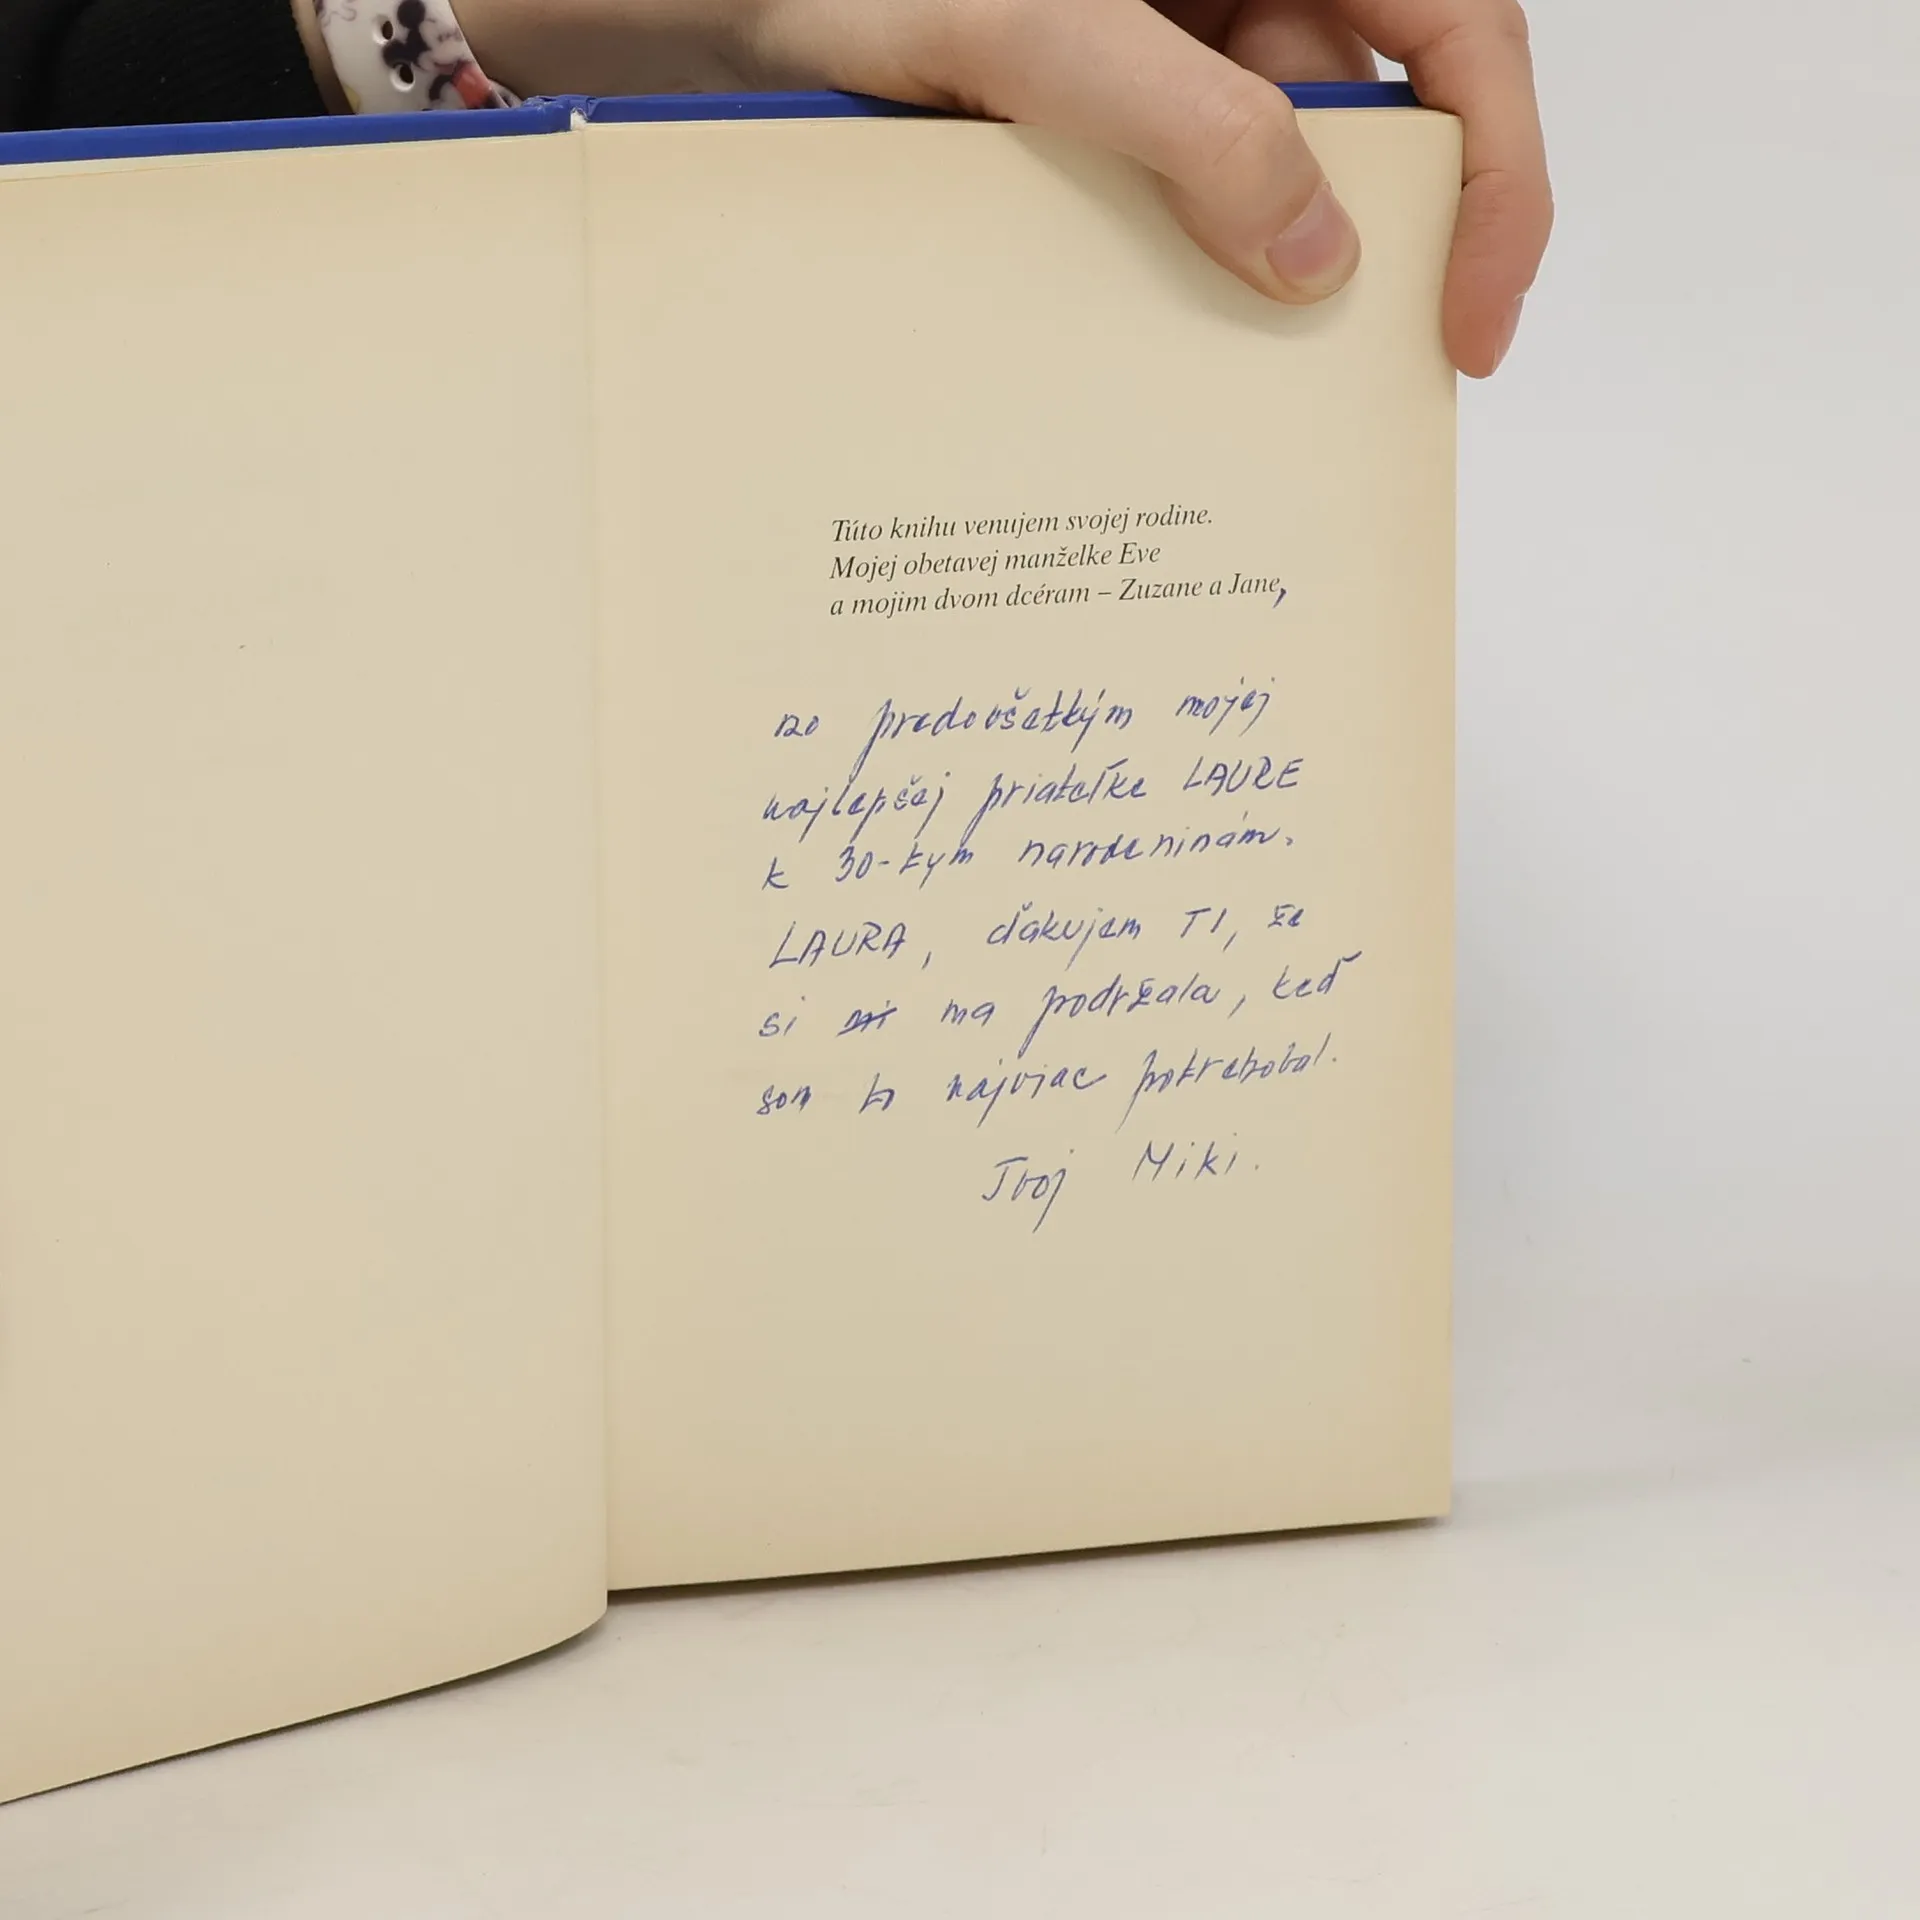 Túto knihu venujem svojej rodine.
Mojej obetavej manželke Eve
a mojim dvom dcéram – Zuzane a Jane,
no predovšetkým mojej
najlepšej priateľke LAURE
k 30-tym narodeninám.
LAURA, ďakujem TI, že
si mi ma podržala, keď
som to najviac potreboval.
Tvoj Miki.